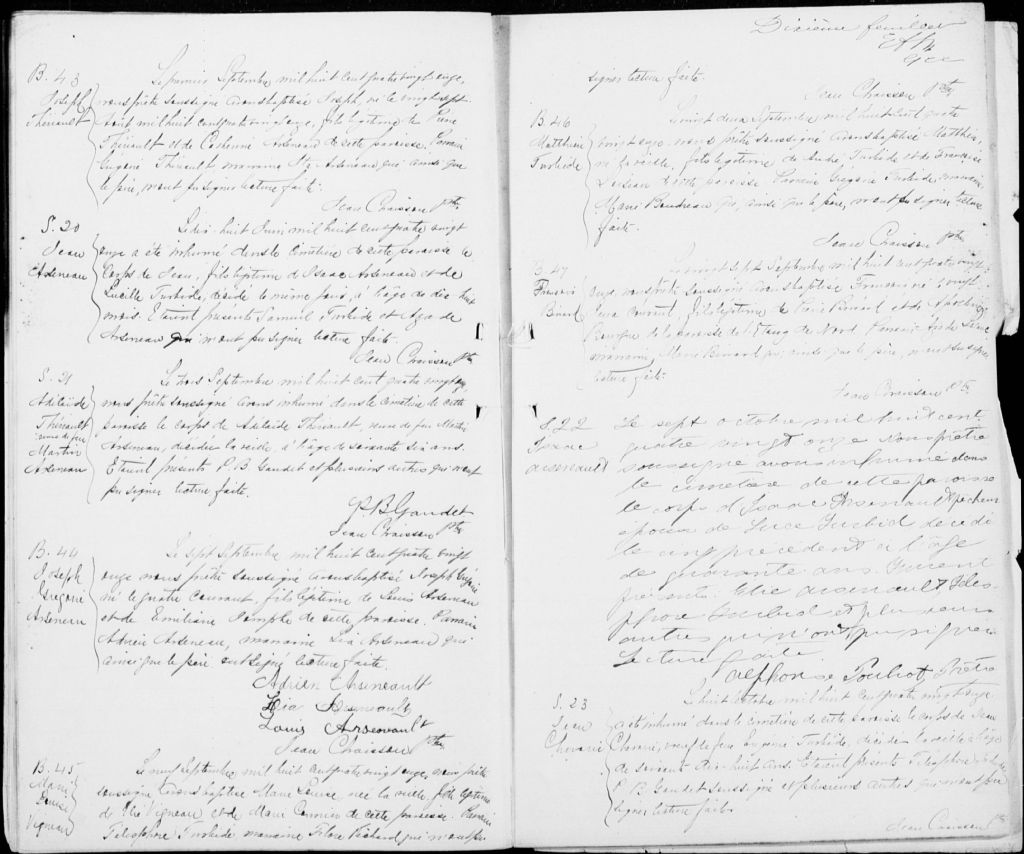 B. 43
Joseph
Thériault
Le premier Septembre mil huit cent quatre vingt onze,
nous prêtre soussigné avons baptisé Joseph, né le vingt sept
Août mil huit cent quatre vingt onze, fils légitime de Pierre
Thériault et de Arseneau de cette paroisse. Parrain
Eugène Thériault marraine Arseneau qui ainsi que
le père, n'ont pu signer lecture faite.
Jean Chaisson Ptre
S. 20
Jean
Arseneau
Le dix huit Juin mil huit cent quatre vingt
onze a été inhumé dans le cimetière de cette paroisse le
Corps de Jean, fils légitime de Isaac Arseneau et de
Lucille Turbide, décédé le même jour, à l'âge de dix huit
mois. Etaient présents Samuel Turbide et de
Arseneau qui n'ont pu signer lecture faite.
Jean Chaisson Ptre
S. 21
Adélaïde
Thériault
veuve de feu
Martin
Arseneau
Le trois Septembre mil huit cent quatre vingt onze
nous prêtre soussigné avons inhumé dans le cimetière de cette
paroisse le corps de Adélaïde Thériault, veuve de feu Martin
Arseneau, décédée la veille, à l'âge de soixante six ans.
Etaient présents P. B. Gaudet et plusieurs autres qui n'ont
pu signer lecture faite.
P. B. Gaudet
Jean Chaisson Ptre
B. 44
Joseph
Grégoire
Arseneau
Le sept Septembre mil huit cent quatre vingt
onze nous prêtre soussigné avons baptisé Joseph Grégoire
né le quatre Courant, fils légitime de Louis Arseneau
et de Emiliane de cette paroisse. Parrain
Adrien Arseneau, marraine Lia Arseneau qui
ainsi que le père ont signé lecture faite.
Adrien Arseneault
Lia Arseneault
Louis Arseneault
Jean Chaisson Ptre
B. 45
Marie
Louise
Vigneau
Le neuf Septembre mil huit cent quatre vingt onze, nous prêtre
soussigné avons baptisé Marie Louise, née la veille, fille légitime
de Vigneau et de Marie de cette paroisse. Parrain
Télesphore Turbide marraine Richard qui n'ont pu
Dixième feuillet
signer lecture faite.
Jean Chaisson Ptre
B. 46
Matthieu
Turbide
Le vingt deux Septembre mil huit cent quatre
vingt onze nous prêtre soussigné avons baptisé Matthieu,
né la veille, fils légitime de André Turbide et de Françoise
de cette paroisse Parrain Grégoire Turbide, marraine
Marie Boudreau qui, ainsi que le père, n'ont pu signer lecture
faite.
Jean Chaisson Ptre
B. 47
François
Le vingt sept Septembre mil huit cent quatre vingt
onze, nous prêtre soussigné avons baptisé François né
courant, fils légitime de et de
de la paroisse de l'Etang du Nord Parrain
marraine, Marie qui, ainsi que le père, n'ont su signer
lecture faite.
Jean Chaisson Ptre
S. 22
Isaac
Arseneault
Le sept octobre mil huit cent
quatre vingt onze Nous prêtre
soussigné avons inhumé dans
le cimetière de cette paroisse
le corps d'Isaac Arseneault pêcheur
époux de Luce Turbid décédé
le cinq précédent à l'âge
de quarante ans. Furent
présents Elie Arseneault Téles-
phore Turbid et plusieurs
autres qui n'ont pu signer
Lecture faite
Alphonse Pouliot, Prêtre
S. 23
Jean
Chevarie
Le huit Octobre mil huit cent quatre vingt onze
a été inhumé dans le cimetière de cette paroisse le corps de Jean
Chevarie, veuf de feu Turbide, décédé la veille à l'âge
de soixante dix huit ans. Etaient présents Télesphore
P. B. Gaudet soussigné et plusieurs autres qui n'ont pu
signer lecture faite.
Jean Chaisson Ptre